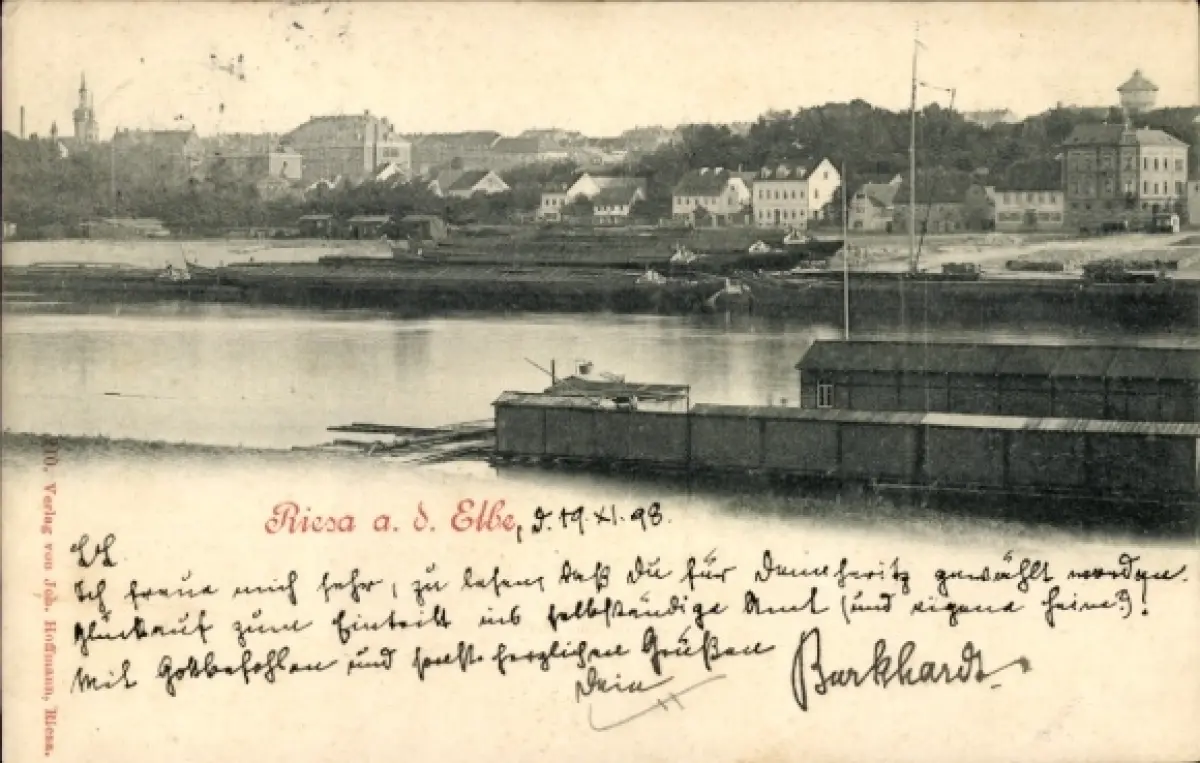 Riesa a. d. Elbe, d. 19. XI. 98.
L L
Ich freue mich sehr, zu lesen, daß Du für gewählt worden.
Glückauf zum Eintritt ins selbständige Amt (und eigene Heim?)!
Mit Gottbefohlen und herzlichen Grüßen
Dein Burkhardt.
Verlag von Joh. Hoffmann, Riesa.